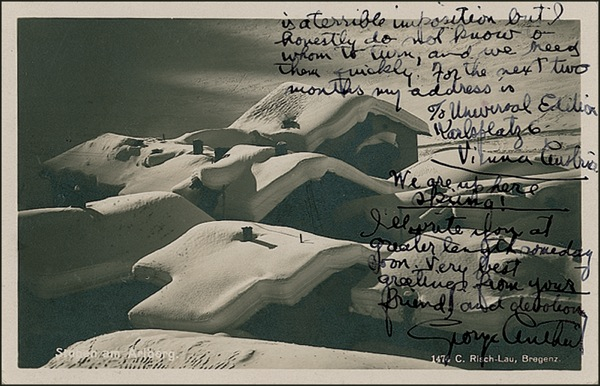 is a terrible imposition but I
honestly do not know to
whom to turn, and we need
them quickly. For the next two
months my address is
To Universal Edition
Karlsplatz 6
Vienna Austria
We are up here
skiing!
I'll write you at
greater length someday
soon. Very best
greetings from your
friend, and devotion
George Antheil
Stuben am Arlberg.
147. C. Risch-Lau, Bregenz.